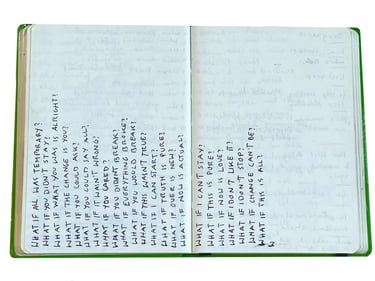 WHAT IF ALL WAS TEMPORARY?
WHAT IF YOU DIDN'T STAY!
WHAT IF WHAT YOU WAS IS ALRIGHT!
WHAT IF THE CHANGE IS YOU?
WHAT IF YOU COULD ASK?
WHAT IF YOU COULD SAY ALL?
WHAT IF IT WAIN'T WRONG?
WHAT IF YOU CARED?
WHAT IF YOU DIDN'T BREAK?
WHAT IF EVERYTHING BROKE?
WHAT IF YOU WOULD BREAK?
WHAT IF THIS WAIN'T TRUE?
WHAT IF I CAN START?
WHAT IF TRUTH IS PURE?
WHAT IF OVER IS NEW?
WHAT IF NOW IS ACTUAL?
WHAT IF I CAN'T STAY?
WHAT IF THIS IS PURE?
WHAT IF NOW IS LOVE?
WHAT IF I DON'T LIKE IT?
WHAT IF I DON'T STOP?
WHAT IF CHANGE CAN'T BE?
WHAT IF THIS IS ALL?
W